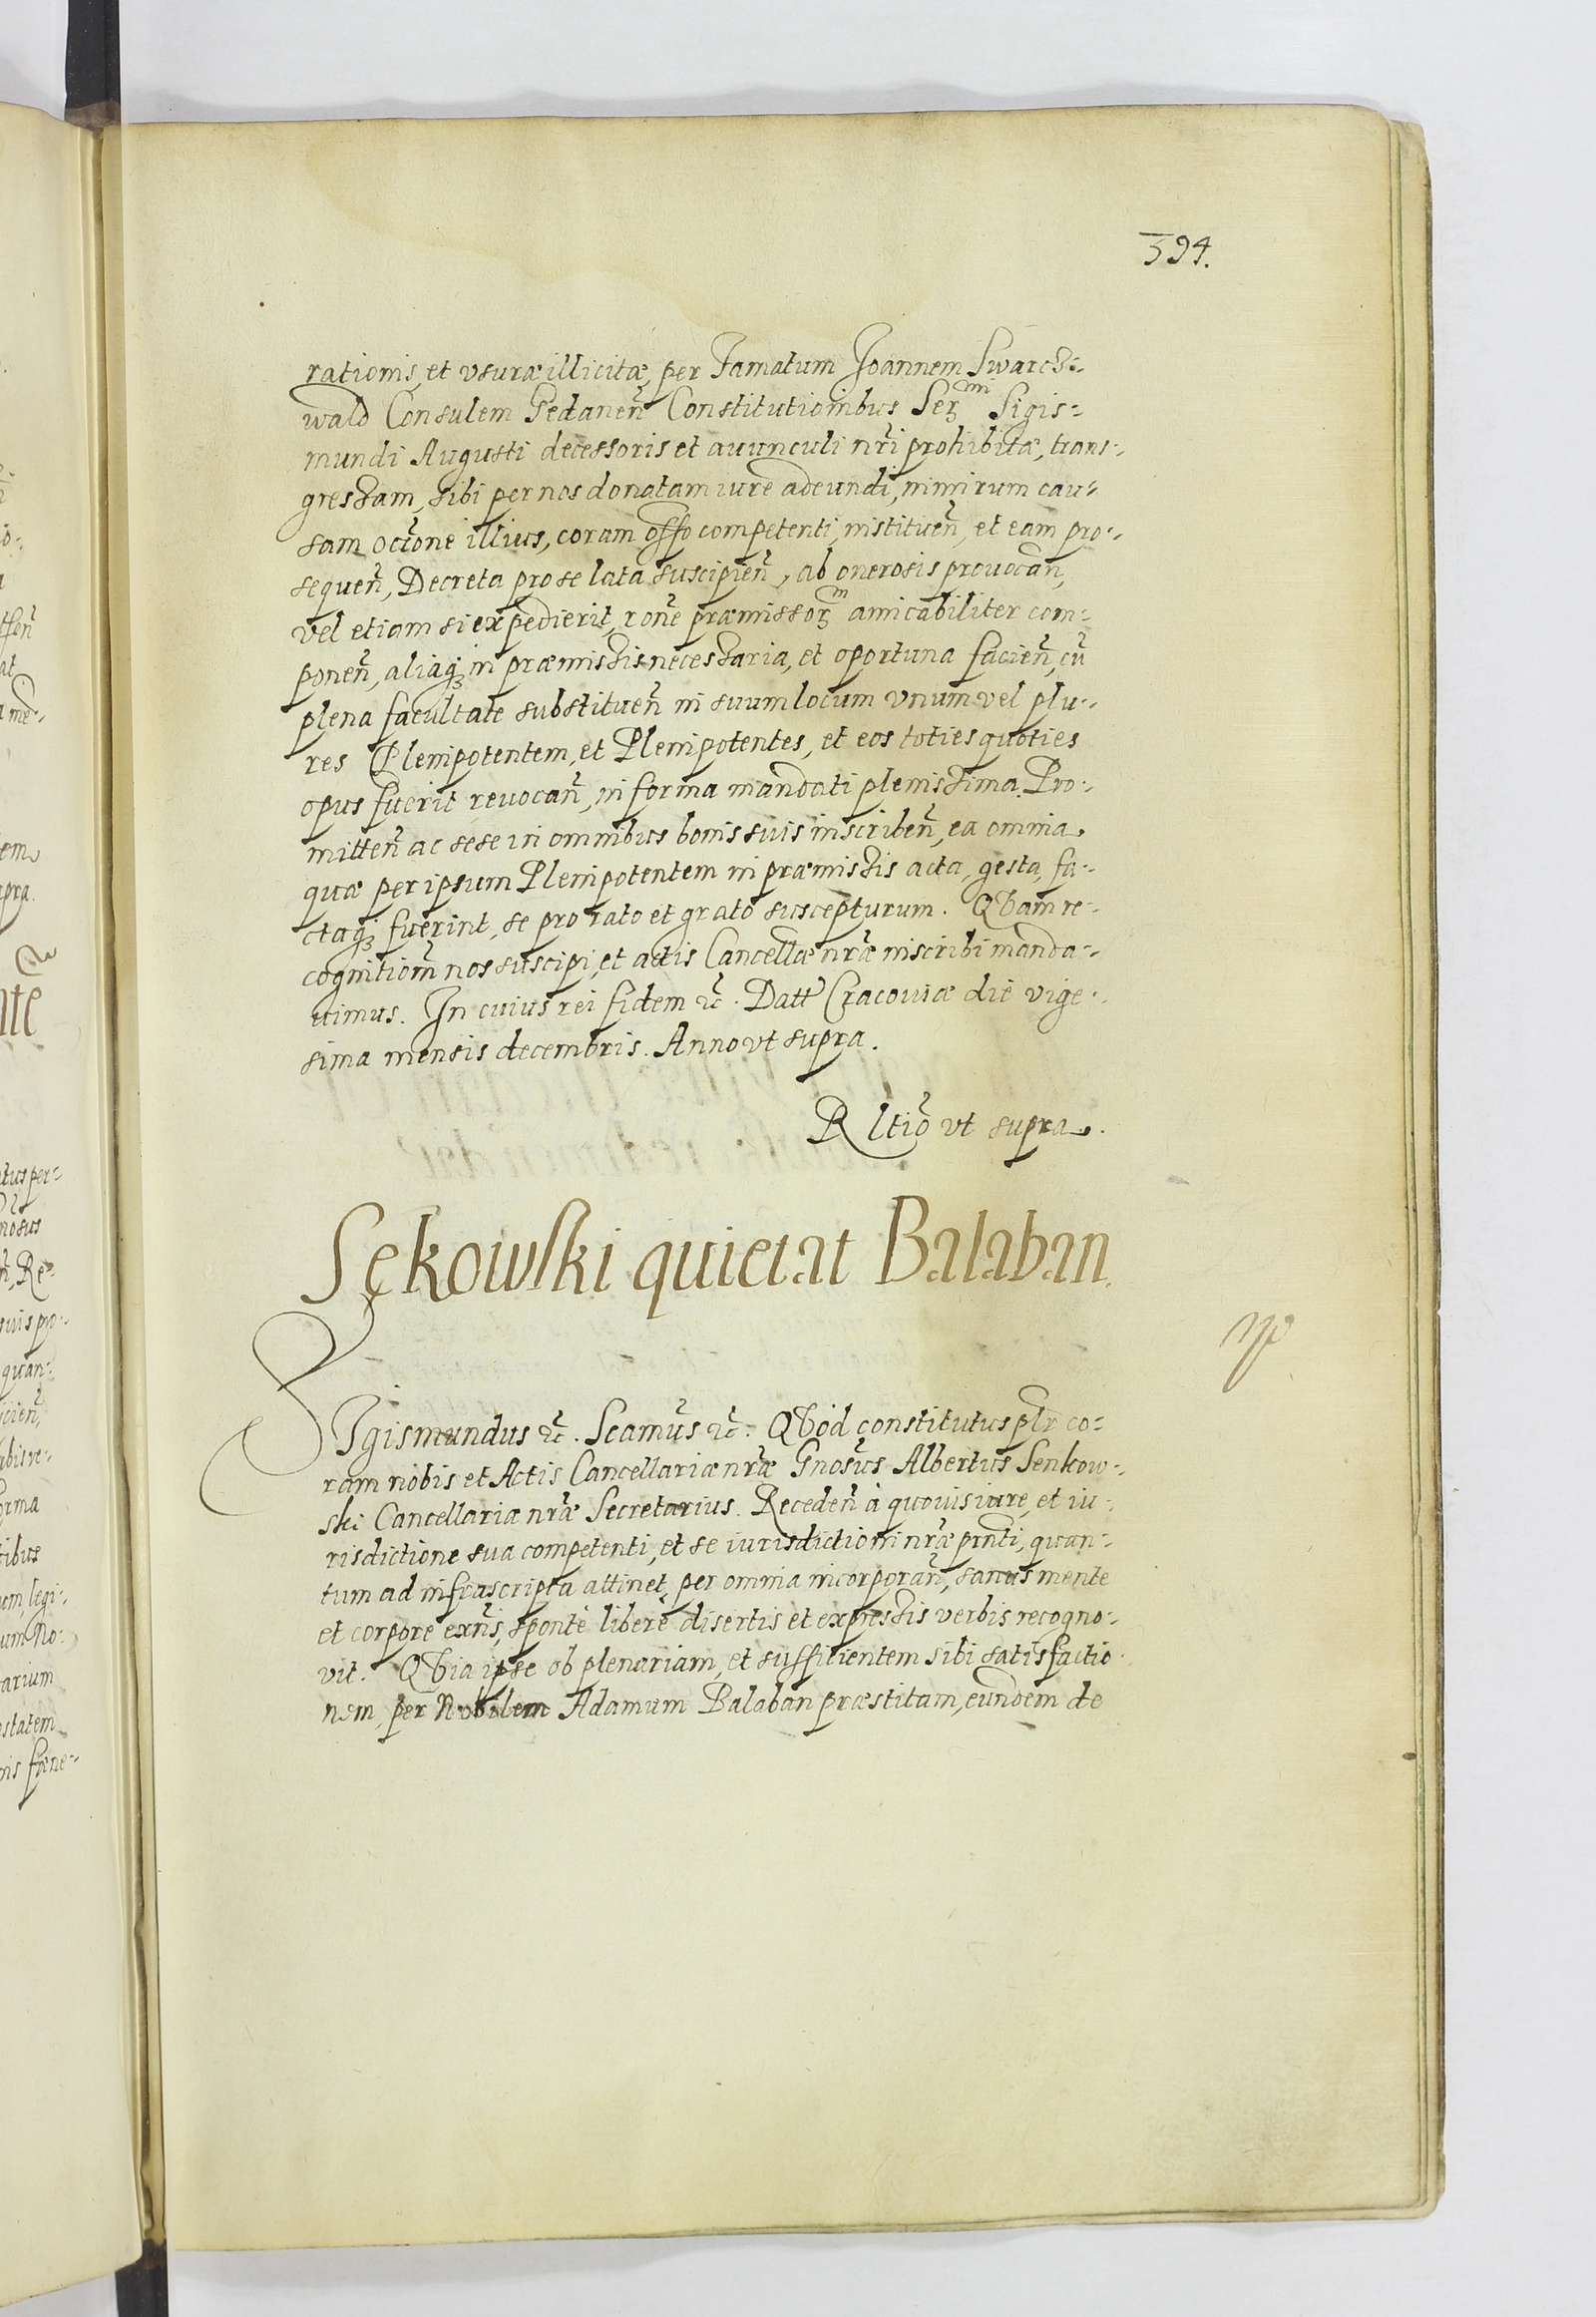 394.
rationis, et vsuræ illicitæ, per Famatum Joannem Swarcz:-
wald Consulem Gedaneñ Constitutionibus Serᵐⁱ Sigis:-
mundi Augusti decessoris et auunculi nr̃i prohibitæ, trans:-
gressam, sibi per nos donatam iure adeundi, nimirum cau:-
sam occ̃one illius, coram offo competenti, instituen̄, et eam pro:-
sequen̄, Decreta pro se lata suscipien̄, ab onerosis prouocan̄,
vel etiam si expedierit, rõne præmissorᵐ amicabiliter com:-
ponen̄, aliaq₃ in præmissis necessaria, et oportuna facien̄, cū
plena facultate substituen̄ in suum locum vnum vel plu:-
res Plenipotentem, et Plenipotentes, et eos toties quoties
opus fuerit reuocan̄, in forma mandati plenissima. Pro:-
mitten̄ ac sese in omnibus bonis suis inscriben̄, ea omnia
quæ per ipsum Plenipotentem in præmissis acta, gesta, fa:-
ctaq₃ fuerint, se pro rato et grato suscepturum. QVam re:-
cognitiom̃ nos suscipi, et actis Cancellæ nr̃æ inscribi manda:-
uimus. In cuius rei fidem ꝛc̃. Datt Cracouiæ die vige:-
sima mensis decembris. Anno vt supra.
Rltiõ vt supra.
Sękowski quietat Balaban
SIgismundus ꝛc̃. Scamus̃ ꝛc̃. QVod constitutus plr̃ co:-
ram nobis et Actis Cancellariæ nr̃æ Gnosus̃ Albertus Senkow:-
ski Cancellariæ nr̃æ Secretarius. Receden̄ à quouis iure, et iu:-
risdictione sua competenti, et se iurisdictioni nr̃æ pñti, quan:-
tum ad infrascripta attinet, per omnia incorporan̄, sanus mente
et corpore exñs, sponte libere disertis et expressis verbis recogno:-
vit. QVia ipse ob plenariam, et sufficientem sibi satisfactio
nem, per Nobilem Adamum Balaban præstitam, eundem de